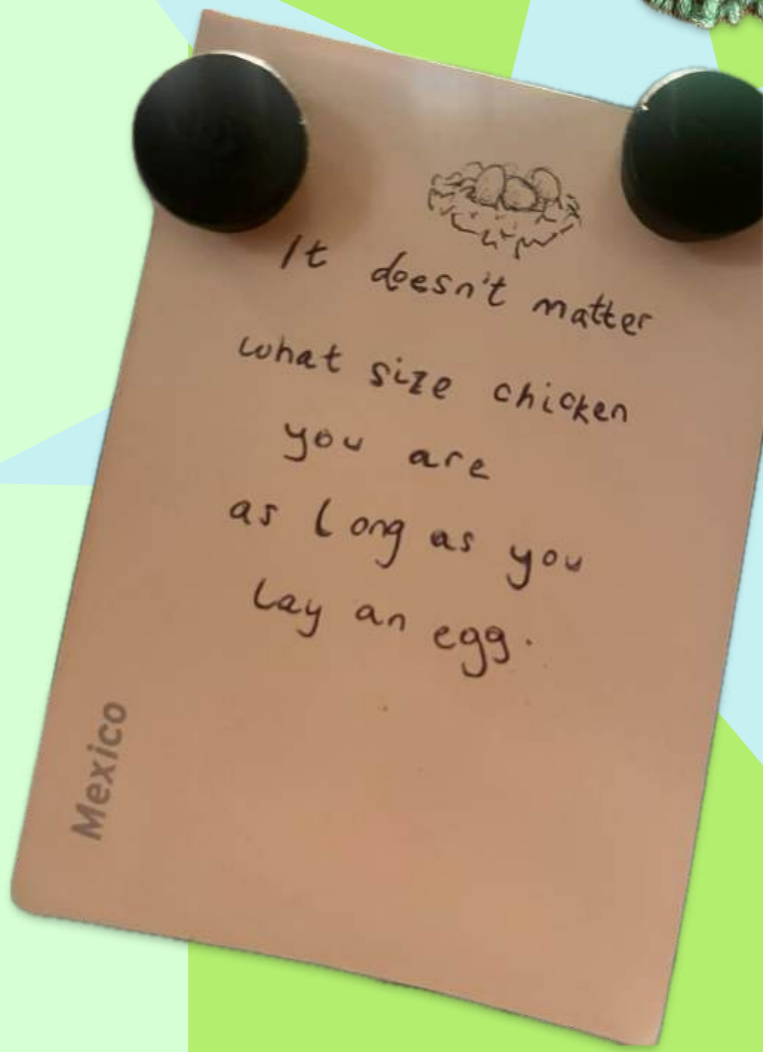 It doesn't matter
what size chicken
you are
as long as you
lay an egg.
Mexico